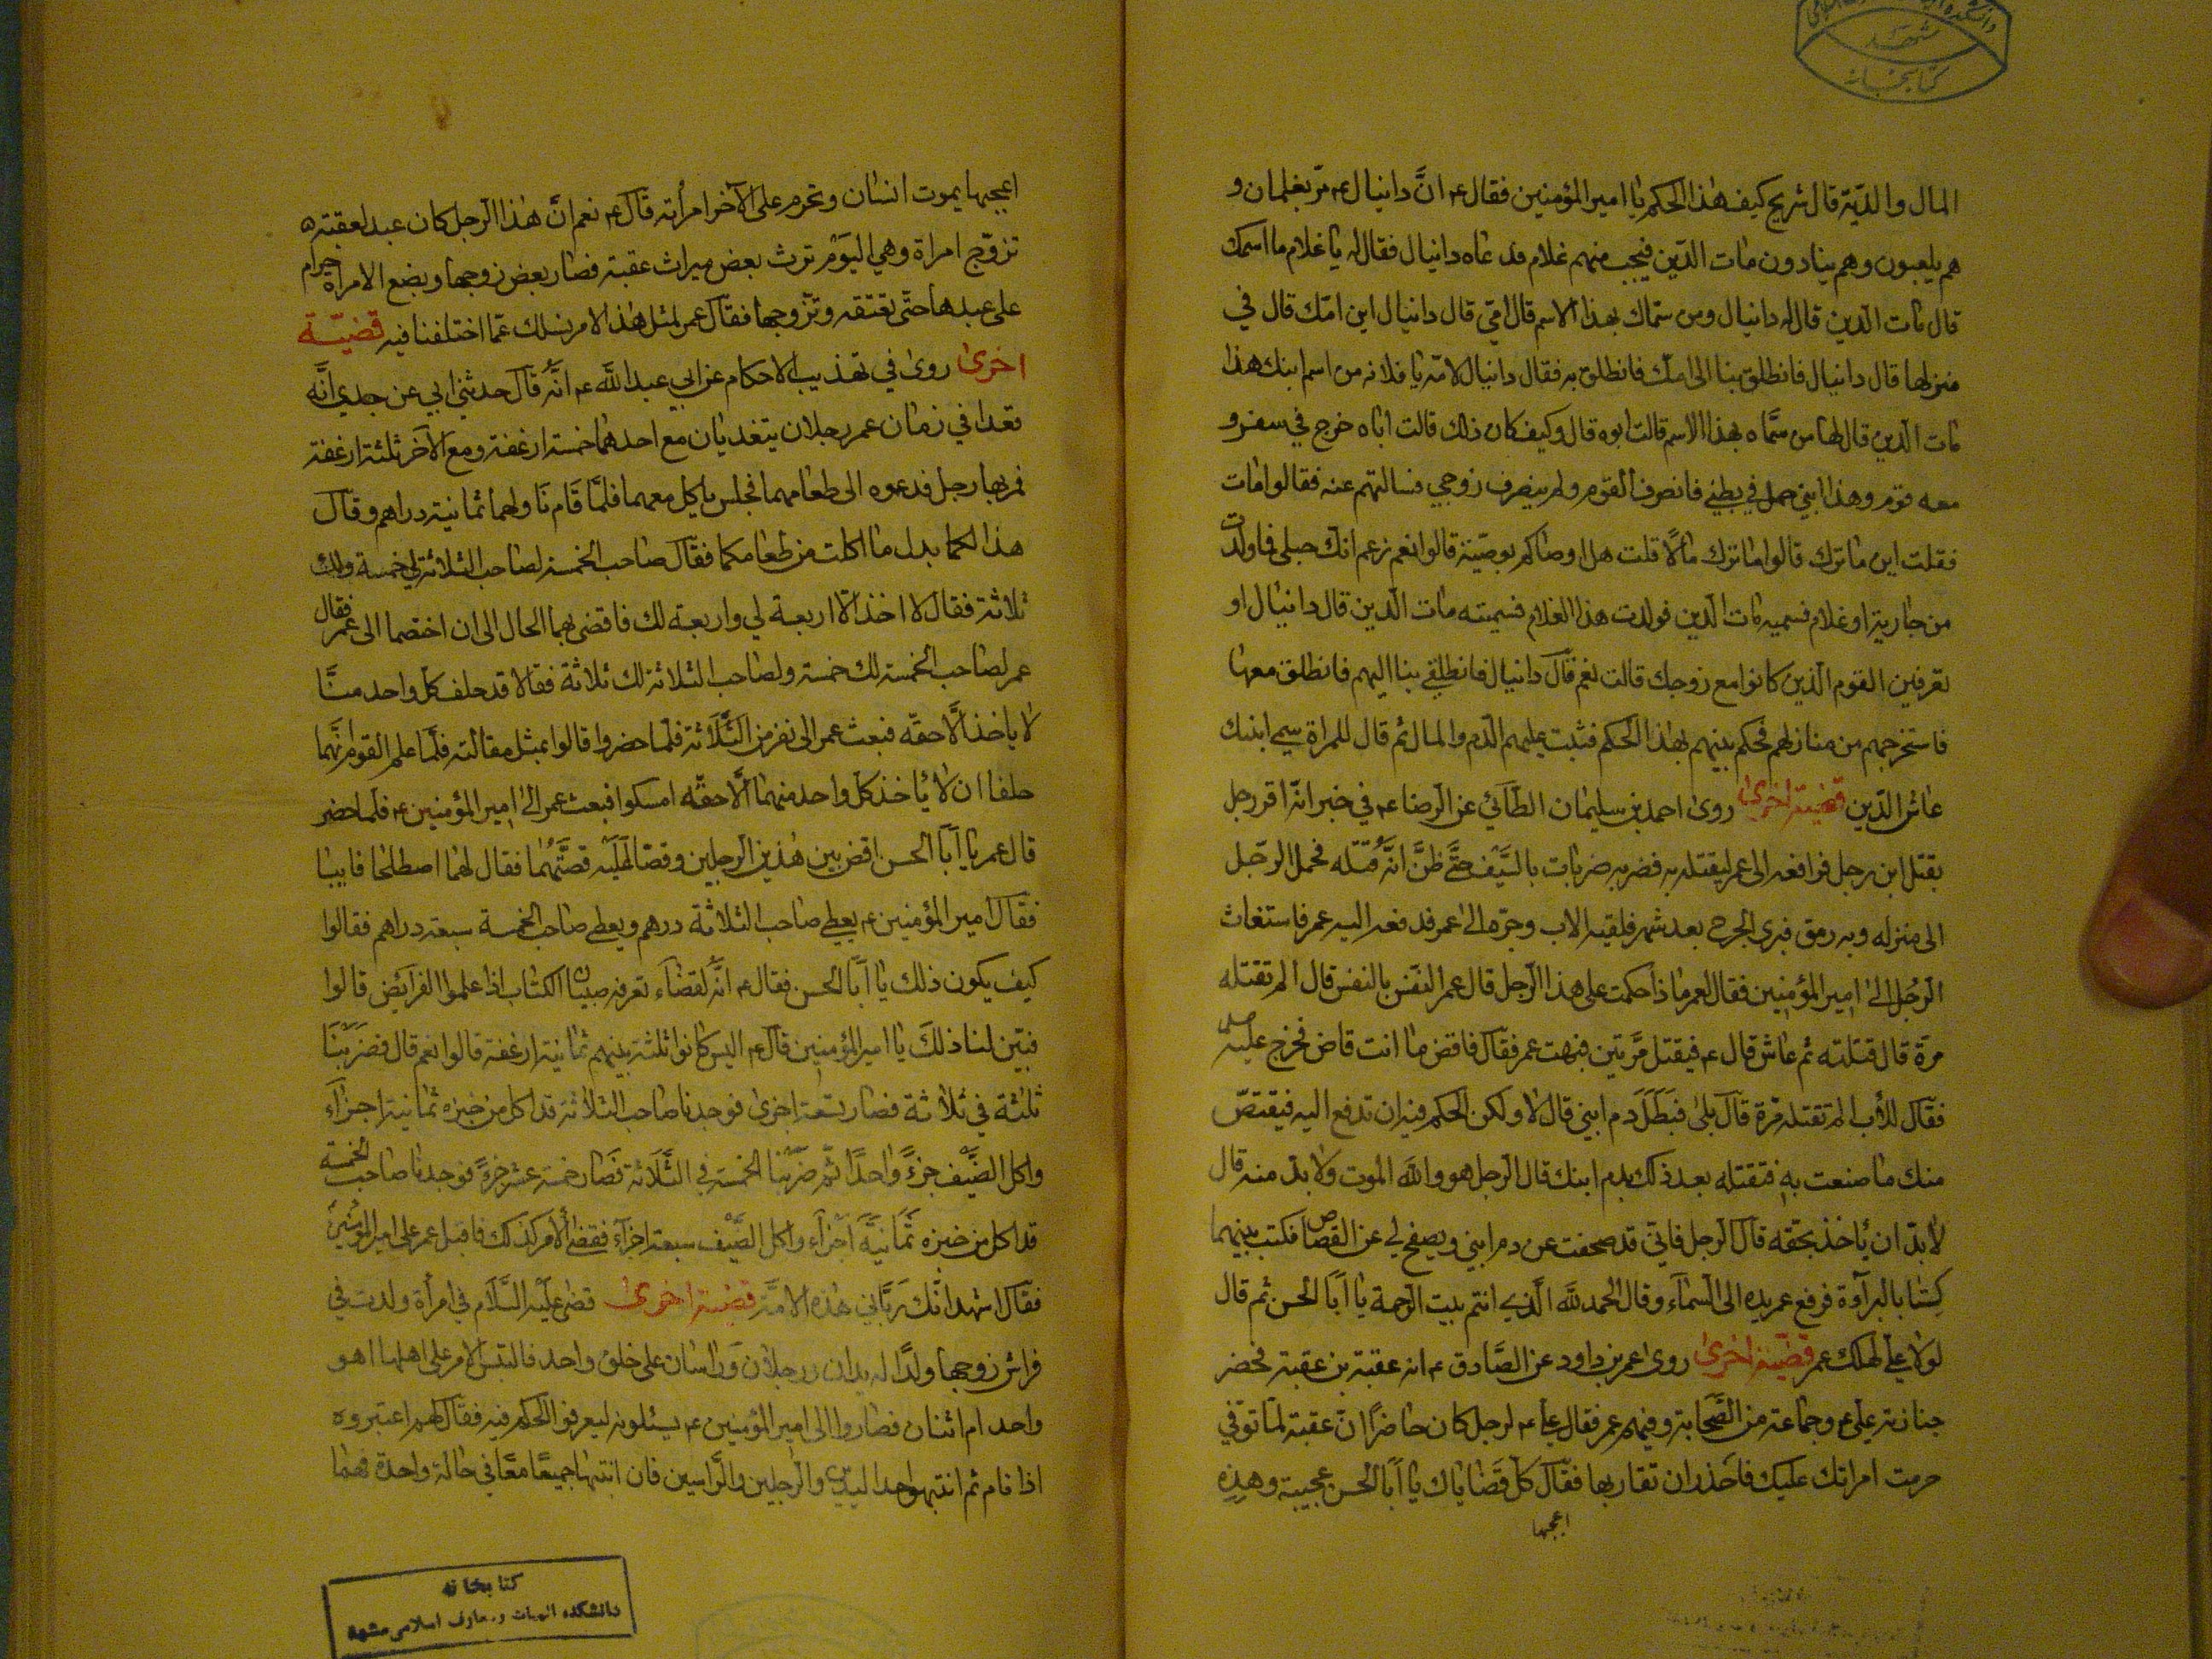 مشهد
كتابخانه
المال والدّية قال شريح كيف هذا الحكم يا امير المؤمنين فقال ع انّ دانيال ع مرّ بغلمان و
هم يلعبون وهم ينادون مات الدّين فيجيب منهم غلام فدعاه دانيال فقال له يا غلام ما اسمك
قال مات الدّين قال له دانيال ومن سمّاك بهذا الاسم قال امّي قال دانيال اين امّك قال في
منزلها قال دانيال فانطلق بنا الى امّك فانطلق به فقال دانيال لامّه يا فلانه من اسم ابنك هذا
مات الدّين قال لها من سمّاه بهذا الاسم قالت ابوه قال وكيف كان ذلك قالت اباه خرج في سفر و
معه قوم وهذا ابني حمل في بطني فانصرف القوم ولم ينصرف زوجي فسالتهم عنه فقالوا مات
فقلت اين ما ترك قالوا ما ترك مالًا قلت هل اوصاكم بوصيّة قالوا نعم زعم انّك حبلى فما ولدت
من جارية او غلام فسميه مات الدّين فولدت هذا الغلام فسميته مات الدّين قال دانيال او
تعرفين القوم الذين كانوا مع زوجك قالت نعم قال دانيال فانطلقي بنا اليهم فانطلق معها
فاستخرجهم من منازلهم فحكم بينهم بهذا الحكم فثبت عليهم الدّم والمال ثم قال للمراة سمي ابنك
عاش الدّين قضيّة اخرى روى احمد بن سليمان الطائي عن الرضا ع في خبر انّه اقر رجل
بقتل ابن رجل فوافعه الى عمر ليقتله به فضربه ضربات بالسّيف حتّى ظنّ انّه قتله فحمل الرّجل
الى منزله وبه رمق فبرئ الجرح بعد شهر فلقيه الاب وجرّه الى عمر فدفعه اليه عمر فاستغاث
الرّجل الى امير المؤمنين فقال لعمر ماذا حكمت على هذا الرّجل قال عمر النفس بالنفس قال الم تقتله
مرة قال قتلته ثم عاش قال ع فيقتل مرّتين فبهت عمر فقال فاقض ما انت قاض فخرج عليه
فقال للأب الم تقتله مرة قال بلى فبطل دم ابني قال لا ولكن الحكم فيه ان تدفع اليه فيقتصّ
منك ما صنعت به فتقتله بعد ذلك بدم ابنك قال الرجل هو والله الموت ولا بدّ منه قال
لا بدّ ان يأخذ بحقّه قال الرجل فاني قد صحفت عن دم ابني ويصفح لي عن القصاص فكتب بينهما
كتابا بالبرآءة فرفع عمر يده الى السّماء وقال الحمد لله الّذي انتم بيت الرّحمة يا ابا الحسن ثم قال
لولا علي لهلك عمر قضيّة اخرى روى عمر بن داود عن الصّادق ع انه عقبة بن عقبة فحضر
جنازته علي ع وجماعة من الصّحابة وفيهم عمر فقال علي ع لرجل كان حاضرًا انّ عقبة لمّا توفي
حرمت امراتك عليك فاحذر ان تقاربها فقال كلّ قضاياك يا ابا الحسن عجيبة وهذه
اعجبها
اعجبها يموت انسان وتحرم على الآخر امرأته قال ع نعم انّ هذا الرجل كان عبد لعقبة
تزوّج امراة وهي اليوم ترث بعض ميراث عقبة فصار بعض زوجها وبضع الامراة حرام
على عبدها حتّى تعتقه وتزوجها فقال عمر لمثل هذا الامر نسلك عمّا اختلفنا فيه قضيّة
اخرى روى في تهذيب الاحكام عن ابي عبد الله ع انّه قال حدثني ابي عن جدي انّه
قعدا في زمان عمر رجلان يتغديان مع احدهما خمسة ارغفة ومع الآخر ثلثة ارغفة
فمر بها رجل فدعوه الى طعامهما فجلس ياكل معهما فلمّا قام ناولهما ثمانية دراهم وقال
هذا لكما بدل ما اكلت من طعامكما فقال صاحب الخمسة لصاحب الثلاثة لي خمسة ولك
ثلاثة فقال لا اخذ الّا اربعة لي واربعة لك فاقضى بهما الحال الى ان اختصما الى عمر فقال
عمر لصاحب الخمسة لك خمسة ولصاحب الثلاثة لك ثلاثة فقالا قد حلف كلّ واحد منّا
لا يأخذ الّا حقّه فبعث عمر الى نفر من الثّلاثة فلمّا حضروا قالوا بمثل مقالته فلمّا علم القوم انّهما
حلفا ان لا يأخذ كل واحد منهما الّا حقّه امسكوا فبعث عمر الى امير المؤمنين ع فلمّا حضر
قال عمر يا ابا الحسن اقض بين هذين الرجلين وقصّا عليه قصّتهما فقال لهما اصطلحا فابيا
فقال امير المؤمنين ع يعطي صاحب الثلاثة درهم ويعطي صاحب الخمسة سبعة دراهم فقالوا
كيف يكون ذلك يا ابا الحسن فقال ع انّه لقضاء تعرفه صبيان الكتاب اذا علموا الفرائض قالوا
فبيّن لنا ذلك يا امير المؤمنين قال ع اليس كانوا ثلثة بينهم ثمانية ارغفة قالوا نعم قال فضربنا
ثلثة في ثلاثة فصار تسعة اخرى فوجدنا صاحب الثلاثة قد اكل من خبزه ثمانية اجزآء
واكل الضّيف جزءً واحدًا ثم ضربنا الخمسة في الثّلاثة فصار خمسة عشر جزءً فوجدنا صاحب الخمسة
قد اكل من خبزه ثمانية اجزآء واكل الضّيف سبعة اجزآء فقضى الأمر كذلك فاقبل عمر على امير المؤمنين
فقال اشهد انّك ربّاني هذه الامّة قضيّة اخرى قضى عليه السّلام في امرأة ولدت في
فراش زوجها ولدًا له بدان ورجلان وراسان على خلق واحد فالتبس الامر على اهلها اهو
واحد ام اثنان فصاروا الى امير المؤمنين ع يسئلونه ليعرفوا الحكم فيه فقال لهم اعتبروه
اذا قام ثم انتبهوا احدا ليدين والرجلين والرّاسين فان انتبها جميعًا معًا في حالة واحدة فهما
كتابخانه
دانشكده الهيات و معارف اسلامى مشهد